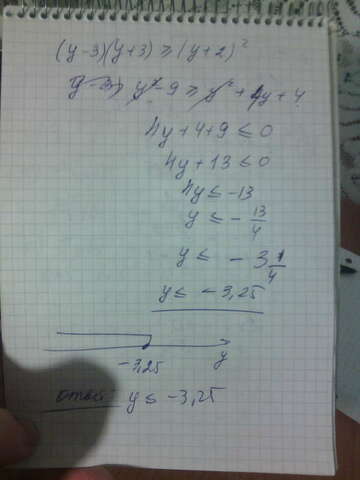 (y-3)(y+3) ≥ (y+2)²
y²-9 ≥ y²+4y+4
4y+4+9 ≤ 0
4y+13 ≤ 0
4y ≤ -13
y ≤ - 13/4
y ≤ - 3 1/4
y ≤ - 3,25
-3,25 y
ответ y ≤ -3,25